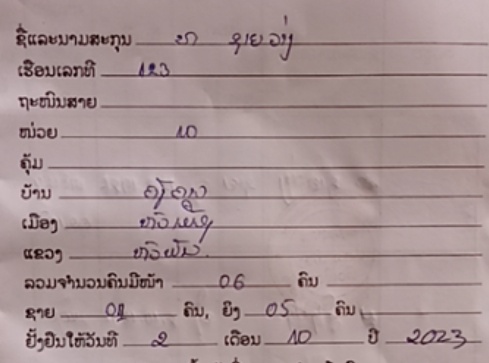 ຊື່ແລະນາມສະກຸນ
ເຮືອນເລກທີ 123
ຖະໜົນສາຍ
ໜ່ວຍ 10
ຄຸ້ມ
ບ້ານ
ເມືອງ
ແຂວງ ຫົວພັນ
ລວມຈຳນວນຄົນມີໜ້າ 06 ຄົນ
ຊາຍ 01 ຄົນ, ຍິງ 05 ຄົນ
ຢັ້ງຢືນໃຫ້ວັນທີ 2 ເດືອນ 10 ປີ 2023